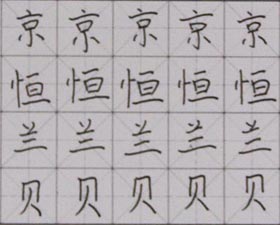 京京京京京
恒恒恒恒恒
兰兰兰兰兰
贝贝贝贝贝